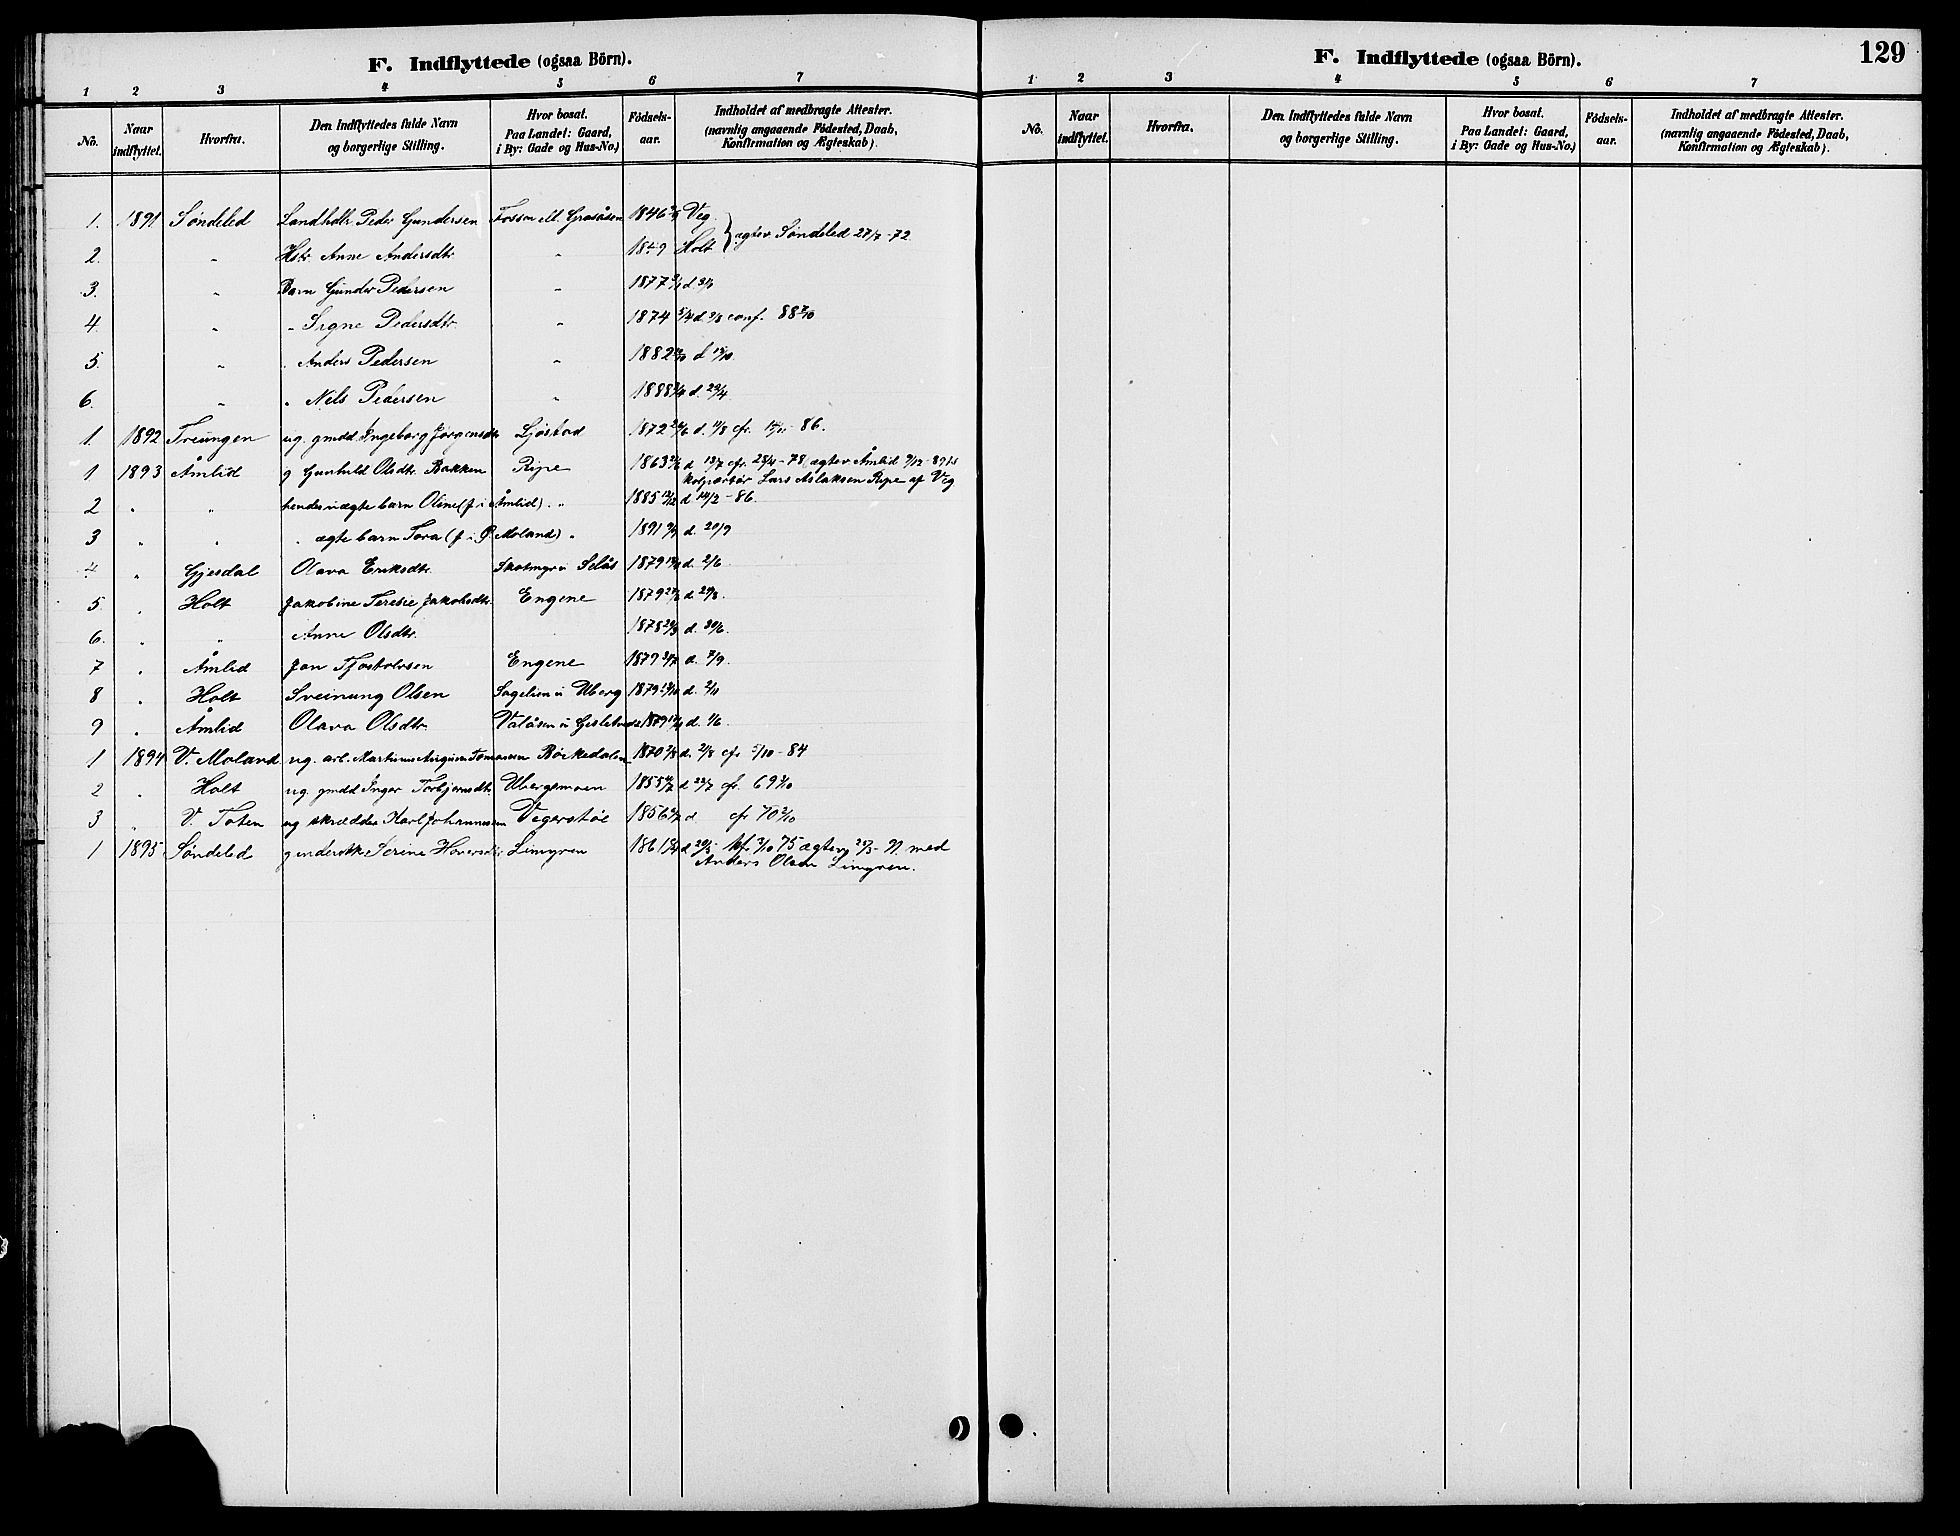 F. Indflyttede (ogsaa Börn).
1 2 3 4 5 6 7
No. Naar indflyttet. Hvorfra. Den Indflyttedes fulde Navn og borgerlige Stilling. Hvor bosat. Paa Landet: Gaard, i By: Gade og Hus-No.) Födsels-aar. Indholdet af medbragte Attester. (navnlig angaaende Födested, Daab, Konfirmation og Ægteskab).
1. 1891 Søndeled Landhdlr. Peder Gundersen Fosson ell. Grasåsen 1846 Veg
2. " Hstr. Anne Andersdtr. " 1849 Holt } ægtev. Søndeled 27/7-72
3. " Barn Gunder Pedersen " 1877 d.
4. " " Signe Pedersdtr. " 1874 5/4 d. conf. 88
5. " " Anders Pedersen " 1882 d.
6. " " Nels Pedersen " 1888 d. 29/4.
1 1892 Treungen ug. gmdd Ingeborg Jørgensdtr Ljøstad 1872 d. cfr. 86.
1 1893 Åmlid g Gunhild Olsdtr. Bakken Ripe 1863 d. 12/7 cfr. 28/4-78, ægtev. Åmlid
kolportør Lars Aslaksen Ripe af Veg
2 " " hendes uægte barn Oline (f. i Åmlid) " 1885 d 14/2-86.
3 " " " ægte barn Tora (f. i Ø. Moland) " 1891 d. 20/9
4 " Gjesdal Olava Eriksdtr. Skatmyr u Selås 1879 d. 2/6
5 " Holt Jakobine Teresie Jakobsdtr. Engene 1879 d. 29/8.
6. " " Anne Olsdtr. 1878 d. 30/6.
7 " Åmlid Jon Tjostolvsen Engene 1879 d. 7/9.
8 " Holt Sveinung Olsen Sagelien u Uberg 1879 d. 2/11
9 " Åmlid Olava Olsdtr. Valåsen u 1879 d. 1/6.
1 1894 V. Moland ug. arb. Martinus Tomassen Bøikedalen 1870 d. 21/8 cfr. 5/10-84
2 " Holt ug. gmdd Inger Torbjørnsdtr. Ubergsmoen 1855 d 22/7 cfr. 69
3 " V. Toten ug skrædder Karl Johannessen Vegerstøl 1856 d. cfr 70
1 1895 Søndeled g Serine Limyren 1861 d 20/5 kfr. 75 ægtev. med
Anders Olsen Limyren.
F. Indflyttede (ogsaa Börn). 129
1 2 3 4 5 6 7
No. Naar indflyttet. Hvorfra. Den Indflyttedes fulde Navn og borgerlige Stilling. Hvor bosat. Paa Landet: Gaard, i By: Gade og Hus-No.) Födsels-aar. Indholdet af medbragte Attester. (navnlig angaaende Födested, Daab, Konfirmation og Ægteskab).